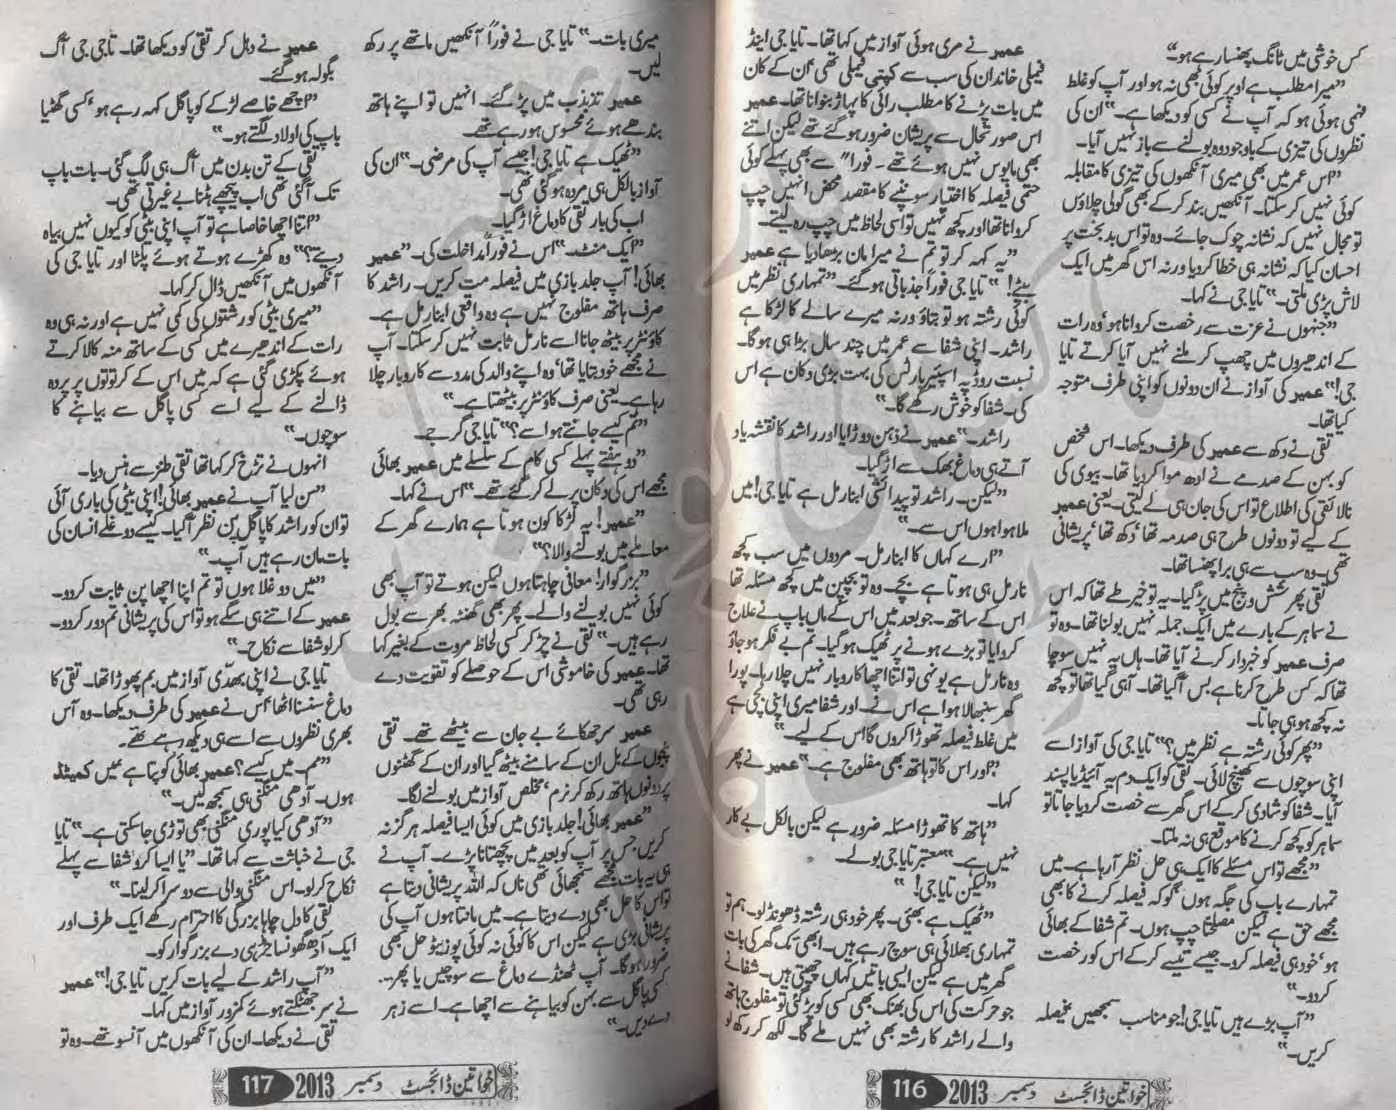 کس خوشی میں ٹانگ پھنسا رہے ہو۔"
"میرا مطلب ہے اوپر کوئی بھی نہ ہو اور آپ کو غلط
فہمی ہوئی ہو کہ آپ نے کسی کو دیکھا ہے۔" ان کی
نظروں کی تیزی کے باوجود وہ بولنے سے باز نہیں آیا۔
"اس عمر میں بھی میری آنکھوں کی تیزی کا مقابلہ
کوئی نہیں کر سکتا۔ آنکھیں بند کر کے بھی گولی چلاؤں
تو مجال نہیں کہ نشانہ چوک جائے۔ وہ تو اس بدبخت پر
احسان کیا کہ نشانہ ہی خطا کر دیا ورنہ اس گھر میں ایک
لاش پڑی ملتی۔" تایا جی نے کہا۔
"جنہوں نے عزت سے رخصت کروانا ہو، وہ رات
کے اندھیروں میں چھپ کر ملنے نہیں آیا کرتے تایا
جی!" عمیر کی آواز نے ان دونوں کو اپنی طرف متوجہ
کیا تھا۔
تقی نے دکھ سے عمیر کی طرف دیکھا۔ اس شخص
کو بہن کے صدمے نے ادھ موا کر دیا تھا۔ بیوی کی
نالائقی کی اطلاع تو اس کی جان ہی لے لیتی۔ یعنی عمیر
کے لیے تو دونوں طرح ہی صدمہ تھا، دکھ تھا، پریشانی
تھی۔ وہ سب سے ہی برا پھنسا تھا۔
تقی پھر شش و پنج میں پڑ گیا۔ یہ تو خیر طے تھا کہ اس
نے سماہر کے بارے میں ایک جملہ نہیں بولنا تھا۔ وہ تو
صرف عمیر کو خبردار کرنے آیا تھا۔ ہاں یہ نہیں سوچا
تھا کہ کس طرح کرنا ہے بس آ گیا تھا۔ آ ہی گیا تھا تو کچھ
نہ کچھ ہو ہی جاتا۔
"پھر کوئی رشتہ ہے نظر میں؟" تایا جی کی آواز اسے
اپنی سوچوں سے کھینچ لائی۔ تقی کو ایک دم یہ آئیڈیا پسند
آیا۔ شفا کو شادی کر کے اس گھر سے رخصت کر دیا جاتا تو
سماہر کو کچھ کرنے کا موقع ہی نہ ملتا۔
"مجھے تو اس مسئلے کا ایک ہی حل نظر آ رہا ہے۔ میں
تمہارے باپ کی جگہ ہوں گو کہ فیصلہ کرنے کا بھی
مجھے حق ہے لیکن مصلحتاً چپ ہوں۔ تم شفا کے بھائی
ہو، خود ہی فیصلہ کرو۔ جیسے تیسے کر کے اس کو رخصت
کر دو۔"
"آپ بڑے ہیں تایا جی! جو مناسب سمجھیں فیصلہ
کریں۔"
عمیر نے مری ہوئی آواز میں کہا تھا۔ تایا جی اینڈ
فیملی خاندان کی سب سے کپتی فیملی تھی، ان کے کان
میں بات پڑنے کا مطلب رائی کا پہاڑ بنوانا تھا۔ عمیر
اس صورتحال سے پریشان ضرور ہو گئے تھے لیکن اتنے
بھی مایوس نہیں ہوئے تھے۔ فوراً سے بھی پہلے کوئی
حتمی فیصلہ کا اختیار سونپنے کا مقصد محض انہیں چپ
کروانا تھا اور کچھ نہیں تو اسی لحاظ میں چپ رہ لیتے۔
"یہ کہہ کر تو تم نے میرا مان بڑھا دیا ہے عمیر
بیٹے!" تایا جی فوراً جذباتی ہو گئے۔ "تمہاری نظر میں
کوئی رشتہ ہو تو بتاؤ ورنہ میرے سالے کا لڑکا ہے
راشد۔ اپنی شفا سے عمر میں چند سال بڑا ہی ہو گا۔
نسبت روڈ پہ اسپئیر پارٹس کی بہت بڑی دکان ہے اس
کی۔ شفا کو خوش رکھے گا۔"
راشد۔" عمیر نے ذہن دوڑایا اور راشد کا نقشہ یاد
آتے ہی دماغ بھک سے اڑ گیا۔
"لیکن۔ راشد تو پیدائشی ابنارمل ہے تایا جی! میں
ملا ہوا ہوں اس سے۔"
"ارے کہاں کا ابنارمل۔ مردوں میں سب کچھ
نارمل ہی ہوتا ہے بچے۔ وہ تو بچپن میں کچھ مسئلہ تھا
اس کے ساتھ۔ جو بعد میں اس کے ماں باپ نے علاج
کروایا تو بڑے ہونے پر ٹھیک ہو گیا۔ تم بے فکر ہو جاؤ
وہ نارمل ہے یونہی تو اتنا اچھا کاروبار نہیں چلا رہا۔ پورا
گھر سنبھالا ہوا ہے اس نے۔ اور شفا میری اپنی بچی ہے
میں غلط فیصلہ تھوڑا کروں گا اس کے لیے۔"
"اور اس کا تو ہاتھ بھی مفلوج ہے۔" عمیر نے پھر
کہا۔
"ہاتھ کا تھوڑا مسئلہ ضرور ہے لیکن بالکل بے کار
نہیں ہے۔" معتبر تایا جی بولے۔
"لیکن تایا جی!"
"ٹھیک ہے بھئی۔ پھر خود ہی رشتہ ڈھونڈ لو۔ ہم تو
تمہاری بھلائی ہی سوچ رہے ہیں۔ ابھی تک گھر کی بات
گھر میں ہے لیکن ایسی باتیں کہاں چھپتی ہیں۔ شفا نے
جو حرکت کی اس کی بھنک بھی کسی کو پڑ گئی تو مفلوج ہاتھ
والے راشد کا رشتہ بھی نہیں ملے گا۔ لکھ کر رکھ لو
خواتین ڈائجسٹ دسمبر 2013 116
میری بات۔" تایا جی نے فوراً آنکھیں ماتھے پر رکھ
لیں۔
عمیر تذبذب میں پڑ گئے۔ انہیں تو اپنے ہاتھ
بندھے ہوئے محسوس ہو رہے تھے۔
"ٹھیک ہے تایا جی! جیسے آپ کی مرضی۔" ان کی
آواز بالکل ہی مردہ ہو گئی تھی۔
اب کی بار تقی کا دماغ اڑ گیا۔
"ایک منٹ۔" اس نے فوراً مداخلت کی۔ "عمیر
بھائی! آپ جلد بازی میں فیصلہ مت کریں۔ راشد کا
صرف ہاتھ مفلوج نہیں ہے وہ واقعی ابنارمل ہے۔
کاؤنٹر پر بیٹھ جانا اسے نارمل ثابت نہیں کر سکتا۔ آپ
نے مجھے خود بتایا تھا، وہ اپنے والد کی مدد سے کاروبار چلا
رہا ہے۔ یعنی صرف کاؤنٹر پر بیٹھتا ہے۔"
"تم کیسے جانتے ہو اسے؟" تایا جی گرجے۔
"دو ہفتے پہلے کسی کام کے سلسلے میں عمیر بھائی
مجھے اس کی دکان پر لے کر گئے تھے۔" اس نے کہا۔
"عمیر! یہ لڑکا کون ہوتا ہے ہمارے گھر کے
معاملے میں بولنے والا؟"
"بزرگوار! معافی چاہتا ہوں لیکن ہوتے تو آپ بھی
کوئی نہیں بولنے والے۔ پھر بھی گھنٹہ بھر سے بول
رہے ہیں۔" تقی نے چڑ کر کسی لحاظ مروت کے بغیر کہا
تھا۔ عمیر کی خاموشی اس کے حوصلے کو تقویت دے
رہی تھی۔
عمیر سر جھکائے بے جان سے بیٹھے تھے۔ تقی
پنجوں کے بل ان کے سامنے بیٹھ گیا اور ان کے گھٹنوں
پر دونوں ہاتھ رکھ کر نرم، مخلص آواز میں بولنے لگا۔
"عمیر بھائی! جلد بازی میں کوئی ایسا فیصلہ ہرگز نہ
کریں جس پر آپ کو بعد میں پچھتانا پڑے۔ آپ نے
ہی یہ بات مجھے سمجھائی تھی ناں کہ اللہ پریشانی دیتا ہے
تو اس کا حل بھی دے دیتا ہے۔ میں مانتا ہوں آپ کی
پریشانی بڑی ہے لیکن اس کا کوئی نہ کوئی پوزیٹو حل بھی
ضرور ہو گا۔ آپ ٹھنڈے دماغ سے سوچیں یا پھر۔۔۔
کسی پاگل سے بہن کو بیاہنے سے اچھا ہے۔ اسے زہر
دے دیں۔"
عمیر نے دہل کر تقی کو دیکھا تھا۔ تایا جی آگ
بگولہ ہو گئے۔
"اچھے خاصے لڑکے کو پاگل کہہ رہے ہو، کسی گھٹیا
باپ کی اولاد لگتے ہو۔"
تقی کے تن بدن میں آگ ہی لگ گئی۔ بات باپ
تک آ گئی تھی اب پیچھے ہٹنا بے غیرتی تھی۔
"اتنا اچھا خاصا ہے تو آپ اپنی بیٹی کو کیوں نہیں بیاہ
دیتے؟" وہ کھڑے ہوتے ہوئے پلٹا اور تایا جی کی
آنکھوں میں آنکھیں ڈال کر کہا۔
"میری بیٹی کو رشتوں کی کمی نہیں ہے اور نہ ہی وہ
رات کے اندھیرے میں کسی کے ساتھ منہ کالا کرتے
ہوئے پکڑی گئی ہے کہ میں اس کے کرتوتوں پر پردہ
ڈالنے کے لیے اسے کسی پاگل سے بیاہنے کا
سوچوں۔"
انہوں نے تڑخ کر کہا تھا تقی طنز سے ہنس دیا۔
"سن لیا آپ نے عمیر بھائی! اپنی بیٹی کی باری آئی
تو ان کو راشد کا پاگل پن نظر آ گیا۔ کیسے دوغلے انسان کی
بات مان رہے ہیں آپ۔"
"میں دوغلا ہوں تو تم اپنا اچھا پن ثابت کر دو۔
عمیر کے اتنے ہی سگے ہو تو اس کی پریشانی تم دور کر دو۔
کر لو شفا سے نکاح۔"
تایا جی نے اپنی بھدّی آواز میں بم پھوڑا تھا۔ تقی کا
دماغ سنسنا اٹھا، اس نے عمیر کی طرف دیکھا۔ وہ آس
بھری نظروں سے اسے ہی دیکھ رہے تھے۔
"م۔ میں کیسے؟ عمیر بھائی کو پتا ہے میں کمیٹڈ
ہوں۔ آدھی منگنی ہی سمجھ لیں۔"
"آدھی کیا پوری منگنی بھی توڑی جا سکتی ہے۔" تایا
جی نے خباثت سے کہا تھا۔ "یا ایسا کرو شفا سے پہلے
نکاح کر لو۔ اس منگنی والی سے دوسرا کر لینا۔"
تقی کا دل چاہا بزرگی کا احترام رکھے ایک طرف اور
ایک آدھ گھونسا جڑ ہی دے بزرگوار کو۔
"آپ راشد کے لیے بات کریں تایا جی!" عمیر
نے سر جھٹکتے ہوئے کمزور آواز میں کہا۔
تقی نے دیکھا۔ ان کی آنکھوں میں آنسو تھے۔ وہ تو
خواتین ڈائجسٹ دسمبر 2013 117